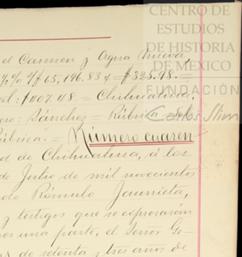 CENTRO DE
ESTUDIOS
DE HISTORIA
DE MEXICO
FUNDACIÓN
Carlos Slim
el Carmen y Ogna Nueva
% % $ 65,196.83 y $325.98. =
$007.48 = Chihuahua,
Sánchez = Rúbrica
Rúbrica = Número cuaren
d de Chihuahua, á los
de Julio de mil novecientos
do Rómulo Jaurrieta,
y testigos que se expresarán
por una parte, el Señor
de setenta y tres años de